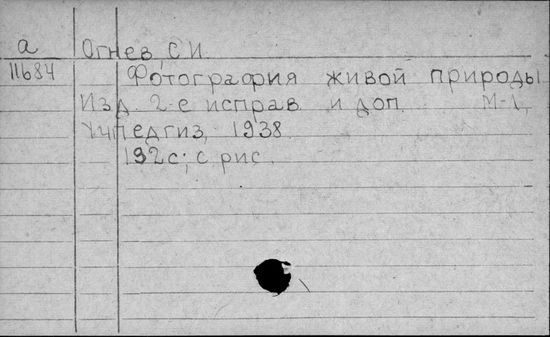 а Огнев, С.И.
11684 Фотография живой природы
Изд. 2-е исправ. и доп. М-Л,
Учпедгиз, 1938.
192с; с рис.